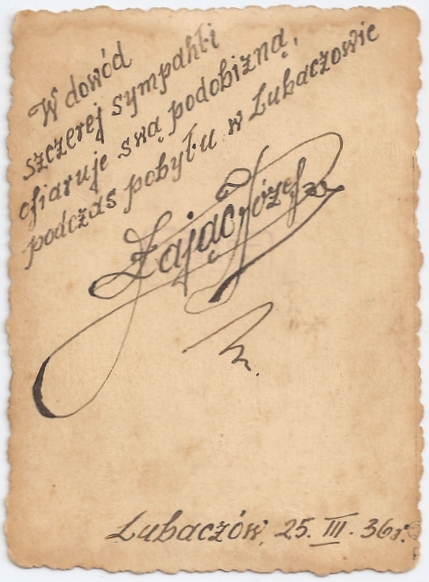 W dowód
szczerej sympahti
ofiaruje swą podobizną,
podczas pobytu w Lubaczowie
Zając Józef
Lubaczów, 25. III. 36 r.